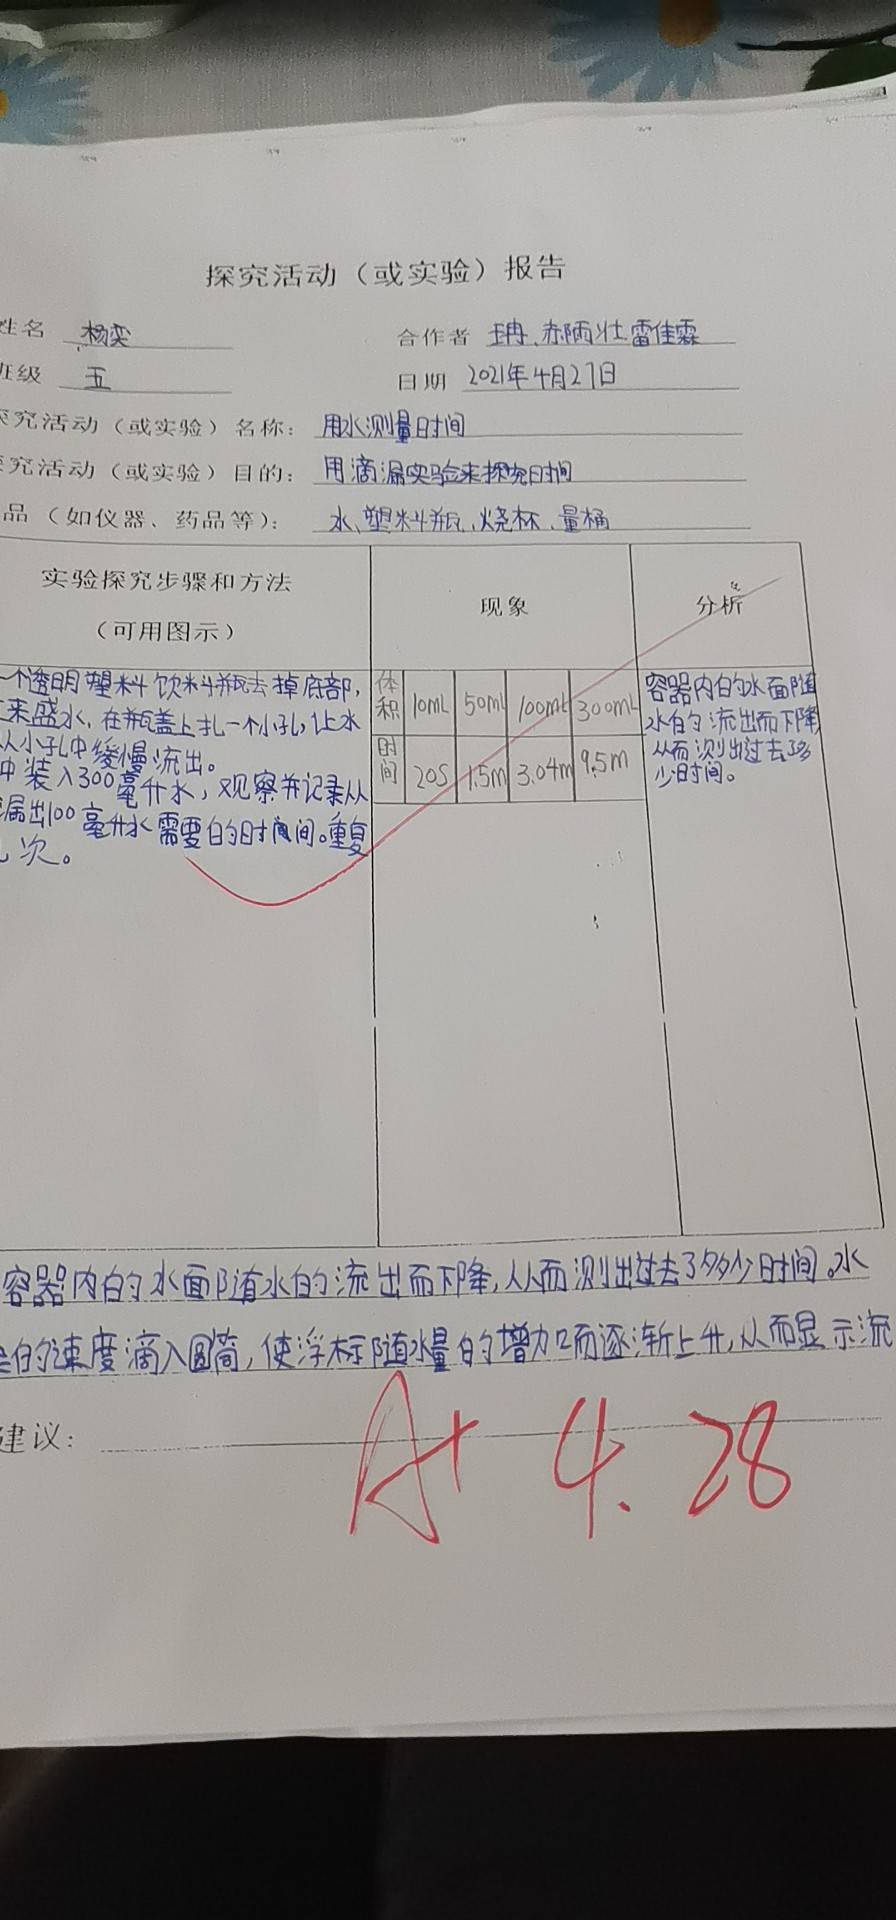 探究活动（或实验）报告
姓名 杨奕 合作者 王冉、郝陌壮 雷佳霖
班级 五 日期 2021年4月27日
究活动（或实验）名称： 用水测量时间
究活动（或实验）目的： 用滴漏实验来探究时间
品（如仪器、药品等）： 水、塑料瓶、烧杯、量桶
实验探究步骤和方法
（可用图示）
现象
分析
一个透明塑料饮料瓶去掉底部，
来盛水，在瓶盖上扎一个小孔，让水
从小孔中缓慢流出。
中装入300毫升水，观察并记录从
漏出100毫升水需要的时间。重复
次。
体积 10mL 50ml 100mL 300mL
时间 20S 1.5m 3.04m 9.5m
容器内的水面随
水的流出而下降，
从而测出过去了多
少时间。
容器内的水面随水的流出而下降，从而测出过去了多少时间。水
的速度滴入圆筒，使浮标随水量的增加而逐渐上升，从而显示流
建议：
A+ 4.28